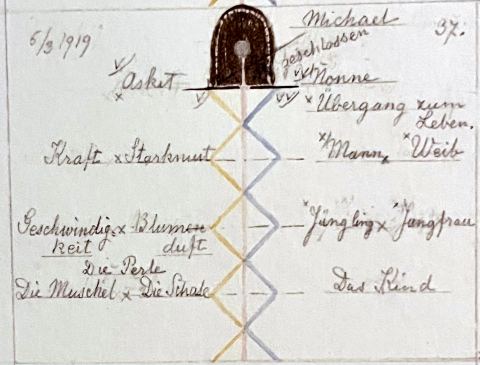 6/3 1919
Michael
37.
geschlossen
Asket
Nonne
× Übergang × zum
Leben.
Kraft × Starkmut
× Mann × Weib
Geschwindig × Blumen
keit duft
× Jüngling × Jungfrau
Die Perle
Die Muschel × Die Schale
Das Kind